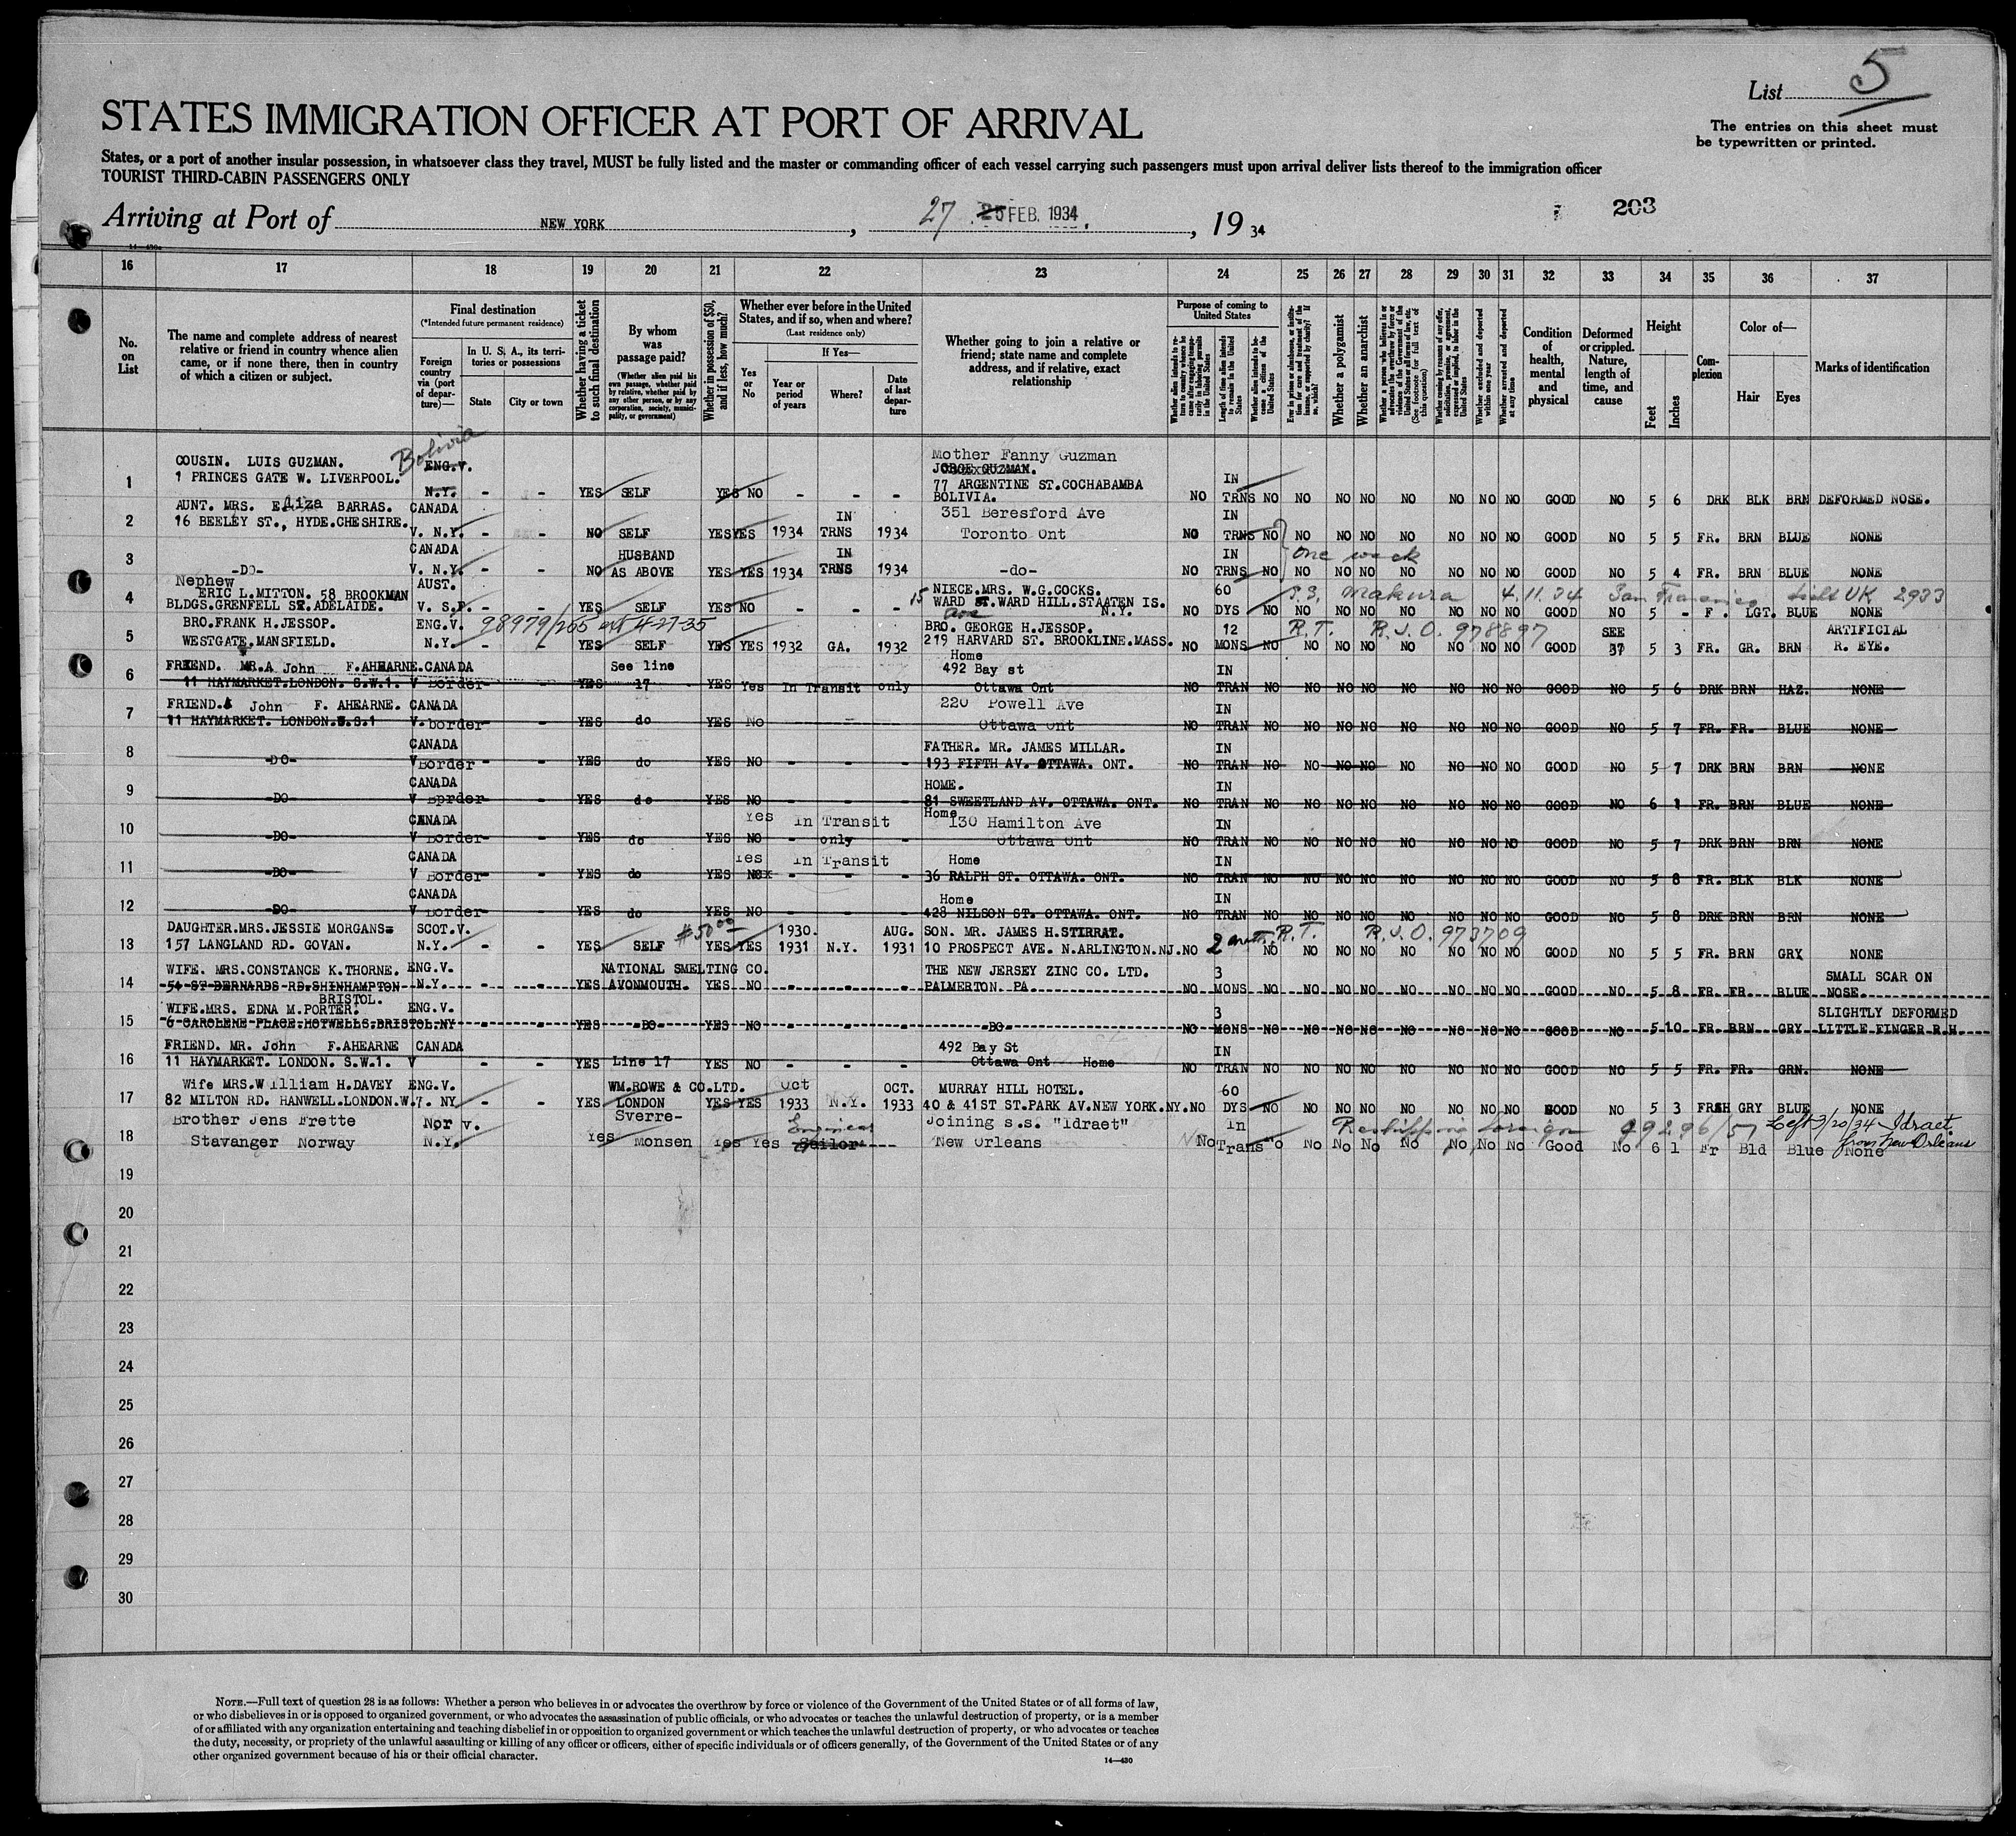 List 5
STATES IMMIGRATION OFFICER AT PORT OF ARRIVAL
The entries on this sheet must
be typewritten or printed.
States, or a port of another insular possession, in whatsoever class they travel, MUST be fully listed and the master or commanding officer of each vessel carrying such passengers must upon arrival deliver lists thereof to the immigration officer
TOURIST THIRD-CABIN PASSENGERS ONLY
Arriving at Port of NEW YORK, 27 25 FEB. 1934, 19 34
203
16 17 18 19 20 21 22 23 24 25 26 27 28 29 30 31 32 33 34 35 36 37
No. on List
The name and complete address of nearest relative or friend in country whence alien came, or if none there, then in country of which a citizen or subject.
Final destination
(*Intended future permanent residence)
Foreign country via (port of departure)—
In U. S. A., its territories or possessions
State
City or town
Whether having a ticket to such final destination
By whom was passage paid?
(Whether alien paid his own passage, whether paid by relative, whether paid by any other person, or by any corporation, society, municipality, or government)
Whether in possession of $50, and if less, how much?
Whether ever before in the United States, and if so, when and where?
(Last residence only)
Yes or No
If Yes—
Year or period of years
Where?
Date of last departure
Whether going to join a relative or friend; state name and complete address, and if relative, exact relationship
Purpose of coming to United States
Length of time alien intends to remain in the United States
Whether alien intends to become a citizen of the United States
Whether a polygamist
Whether an anarchist
Whether excluded and deported within one year
Whether arrested and deported at any time
Condition of health, mental and physical
Deformed or crippled. Nature, length of time, and cause
Height
Feet
Inches
Complexion
Color of—
Hair
Eyes
Marks of identification
1 COUSIN. LUIS GUZMAN. Bolivia ENG.V. Mother Fanny Guzman
JORGE GUZMAN.
1 PRINCES GATE W. LIVERPOOL. 77 ARGENTINE ST.COCHABAMBA IN
N.Y. - - YES SELF YES NO - - - BOLIVIA. NO TRNS NO NO NO NO NO NO NO NO GOOD NO 5 6 DRK BLK BRN DEFORMED NOSE.
2 AUNT. MRS. Eliza BARRAS. CANADA IN 351 Beresford Ave IN
16 BEELEY ST., HYDE.CHESHIRE. V. N.Y. - - NO SELF YES YES 1934 TRNS 1934 Toronto Ont NO TRNS NO NO NO NO NO NO NO NO GOOD NO 5 5 FR. BRN BLUE NONE
3 CANADA HUSBAND IN IN One week
-DO- V. N.Y. - - NO AS ABOVE YES YES 1934 TRNS 1934 -do- NO TRNS NO NO NO NO NO NO NO NO GOOD NO 5 4 FR. BRN BLUE NONE
4 Nephew AUST. NIECE.MRS. W.G.COCKS. 60 S.S. Makura 4.11.34 San Francisco 2933
ERIC L.MITTON. 58 BROOKMAN 15 WARD ST. Ave WARD HILL.STAATEN IS.
BLDGS.GRENFELL ST.ADELAIDE. V. S.F. - - YES SELF YES NO - - - N.Y. NO DYS NO NO NO NO NO NO NO NO GOOD NO 5 - F. LGT. BLUE NONE
5 BRO.FRANK H.JESSOP. ENG.V. 98979/265 4-27-35 BRO. GEORGE H.JESSOP. 12 R.T. R.J.O. 978897 SEE ARTIFICIAL
WESTGATE.MANSFIELD. N.Y. - - YES SELF YES YES 1932 GA. 1932 219 HARVARD ST. BROOKLINE.MASS. NO MONS NO NO NO NO NO NO NO NO GOOD 37 5 3 FR. GR. BRN R. EYE.
6 FRIEND. MR.A John F.AHEARNE. CANADA See line Home 492 Bay st IN
11 HAYMARKET.LONDON. S.W.1. V Border - YES 17 YES Yes In Transit only Ottawa Ont NO TRAN NO NO NO NO NO NO NO NO GOOD NO 5 6 DRK BRN HAZ. NONE
7 FRIEND. John F. AHEARNE. CANADA 220 Powell Ave IN
11 HAYMARKET. LONDON.W.S.1 V. border - YES do YES No - Ottawa Ont NO TRAN NO NO NO NO NO NO NO NO GOOD NO 5 7 FR. FR. BLUE NONE
8 CANADA FATHER. MR. JAMES MILLAR. IN
-DO- V Border - YES do YES NO - - - 193 FIFTH AV. OTTAWA. ONT. NO TRAN NO NO NO NO NO NO NO NO GOOD NO 5 7 DRK BRN BRN NONE
9 CANADA HOME. IN
-DO- V Bprder - YES do YES NO - - - 81 SWEETLAND AV. OTTAWA. ONT. NO TRAN NO NO NO NO NO NO NO NO GOOD NO 6 1 FR. BRN BLUE NONE
10 CANADA Yes In Transit Home 130 Hamilton Ave IN
-DO- V Border - YES do YES NO - only - Ottawa Ont NO TRAN NO NO NO NO NO NO NO NO GOOD NO 5 7 DRK BRN BRN NONE
11 CANADA Yes In Transit Home IN
-DO- V Border - YES do YES NOx - - - 36 RALPH ST. OTTAWA. ONT. NO TRAN NO NO NO NO NO NO NO NO GOOD NO 5 8 FR. BLK BLK NONE
12 CANADA Home IN
-DO- V Border - YES do YES NO - - - 428 NILSON ST. OTTAWA. ONT. NO TRAN NO NO NO NO NO NO NO NO GOOD NO 5 8 DRK BRN BRN NONE
13 DAUGHTER.MRS.JESSIE MORGANS= SCOT.V. $50.00 1930. AUG. SON. MR. JAMES H.STIRRAT. R.T. R.J.O. 973709
157 LANGLAND RD. GOVAN. N.Y. - - YES SELF YES YES 1931 N.Y. 1931 10 PROSPECT AVE. N.ARLINGTON.NJ. NO 2 NO NO NO NO NO NO NO NO GOOD NO 5 5 FR. BRN GRY NONE
14 WIFE. MRS.CONSTANCE K.THORNE. ENG.V. NATIONAL SMELTING CO. THE NEW JERSEY ZINC CO. LTD. 3 SMALL SCAR ON
54 ST BERNARDS RD.SHINHAMPTON N.Y. - - YES AVONMOUTH. YES NO - - - PALMERTON PA. NO MONS NO NO NO NO NO NO NO NO GOOD NO 5 8 FR. FR. BLUE NOSE
BRISTOL.
15 WIFE.MRS. EDNA M.PORTER. ENG.V. 3 SLIGHTLY DEFORMED
6 CAROLENE PLACE.HOTWELLS.BRISTOL. NY - - YES -DO- YES NO - - - -DO- NO MONS NO NO NO NO NO NO NO NO GOOD NO 5 10 FR. BRN GRY LITTLE FINGER R.H.
16 FRIEND. MR. John F.AHEARNE CANADA 492 Bay St IN
11 HAYMARKET. LONDON. S.W.1. V - - YES Line 17 YES NO - - - Ottawa Ont Home NO TRAN NO NO NO NO NO NO NO NO GOOD NO 5 5 FR. FR. GRN. NONE
17 Wife MRS.William H.DAVEY ENG.V. WM.ROWE & CO.LTD. Oct OCT. MURRAY HILL HOTEL. 60
82 MILTON RD. HANWELL.LONDON.W.7. NY - - YES LONDON YES YES 1933 N.Y. 1933 40 & 41ST ST.PARK AV.NEW YORK.NY. NO DYS NO NO NO NO NO NO NO NO GOOD NO 5 3 FRSH GRY BLUE NONE
18 Brother Jens Frette Nor v. Sverre- Engineer Joining s.s. "Idraet" In Reshipping foreign 99296/51 Left 3/20/34 Idraet
Stavanger Norway N.Y. Yes Monsen Yes Yes Sailor New Orleans No Trans No No No No No No No Good No 6 1 Fr Bld Blue None from New Orleans
19
20
21
22
23
24
25
26
27
28
29
30
NOTE.—Full text of question 28 is as follows: Whether a person who believes in or advocates the overthrow by force or violence of the Government of the United States or of all forms of law,
or who disbelieves in or is opposed to organized government, or who advocates the assassination of public officials, or who advocates or teaches the unlawful destruction of property, or is a member
of or affiliated with any organization entertaining and teaching disbelief in or opposition to organized government or which teaches the unlawful destruction of property, or who advocates or teaches
the duty, necessity, or propriety of the unlawful assaulting or killing of any officer or officers, either of specific individuals or of officers generally, of the Government of the United States or of any
other organized government because of his or their official character.
14—430